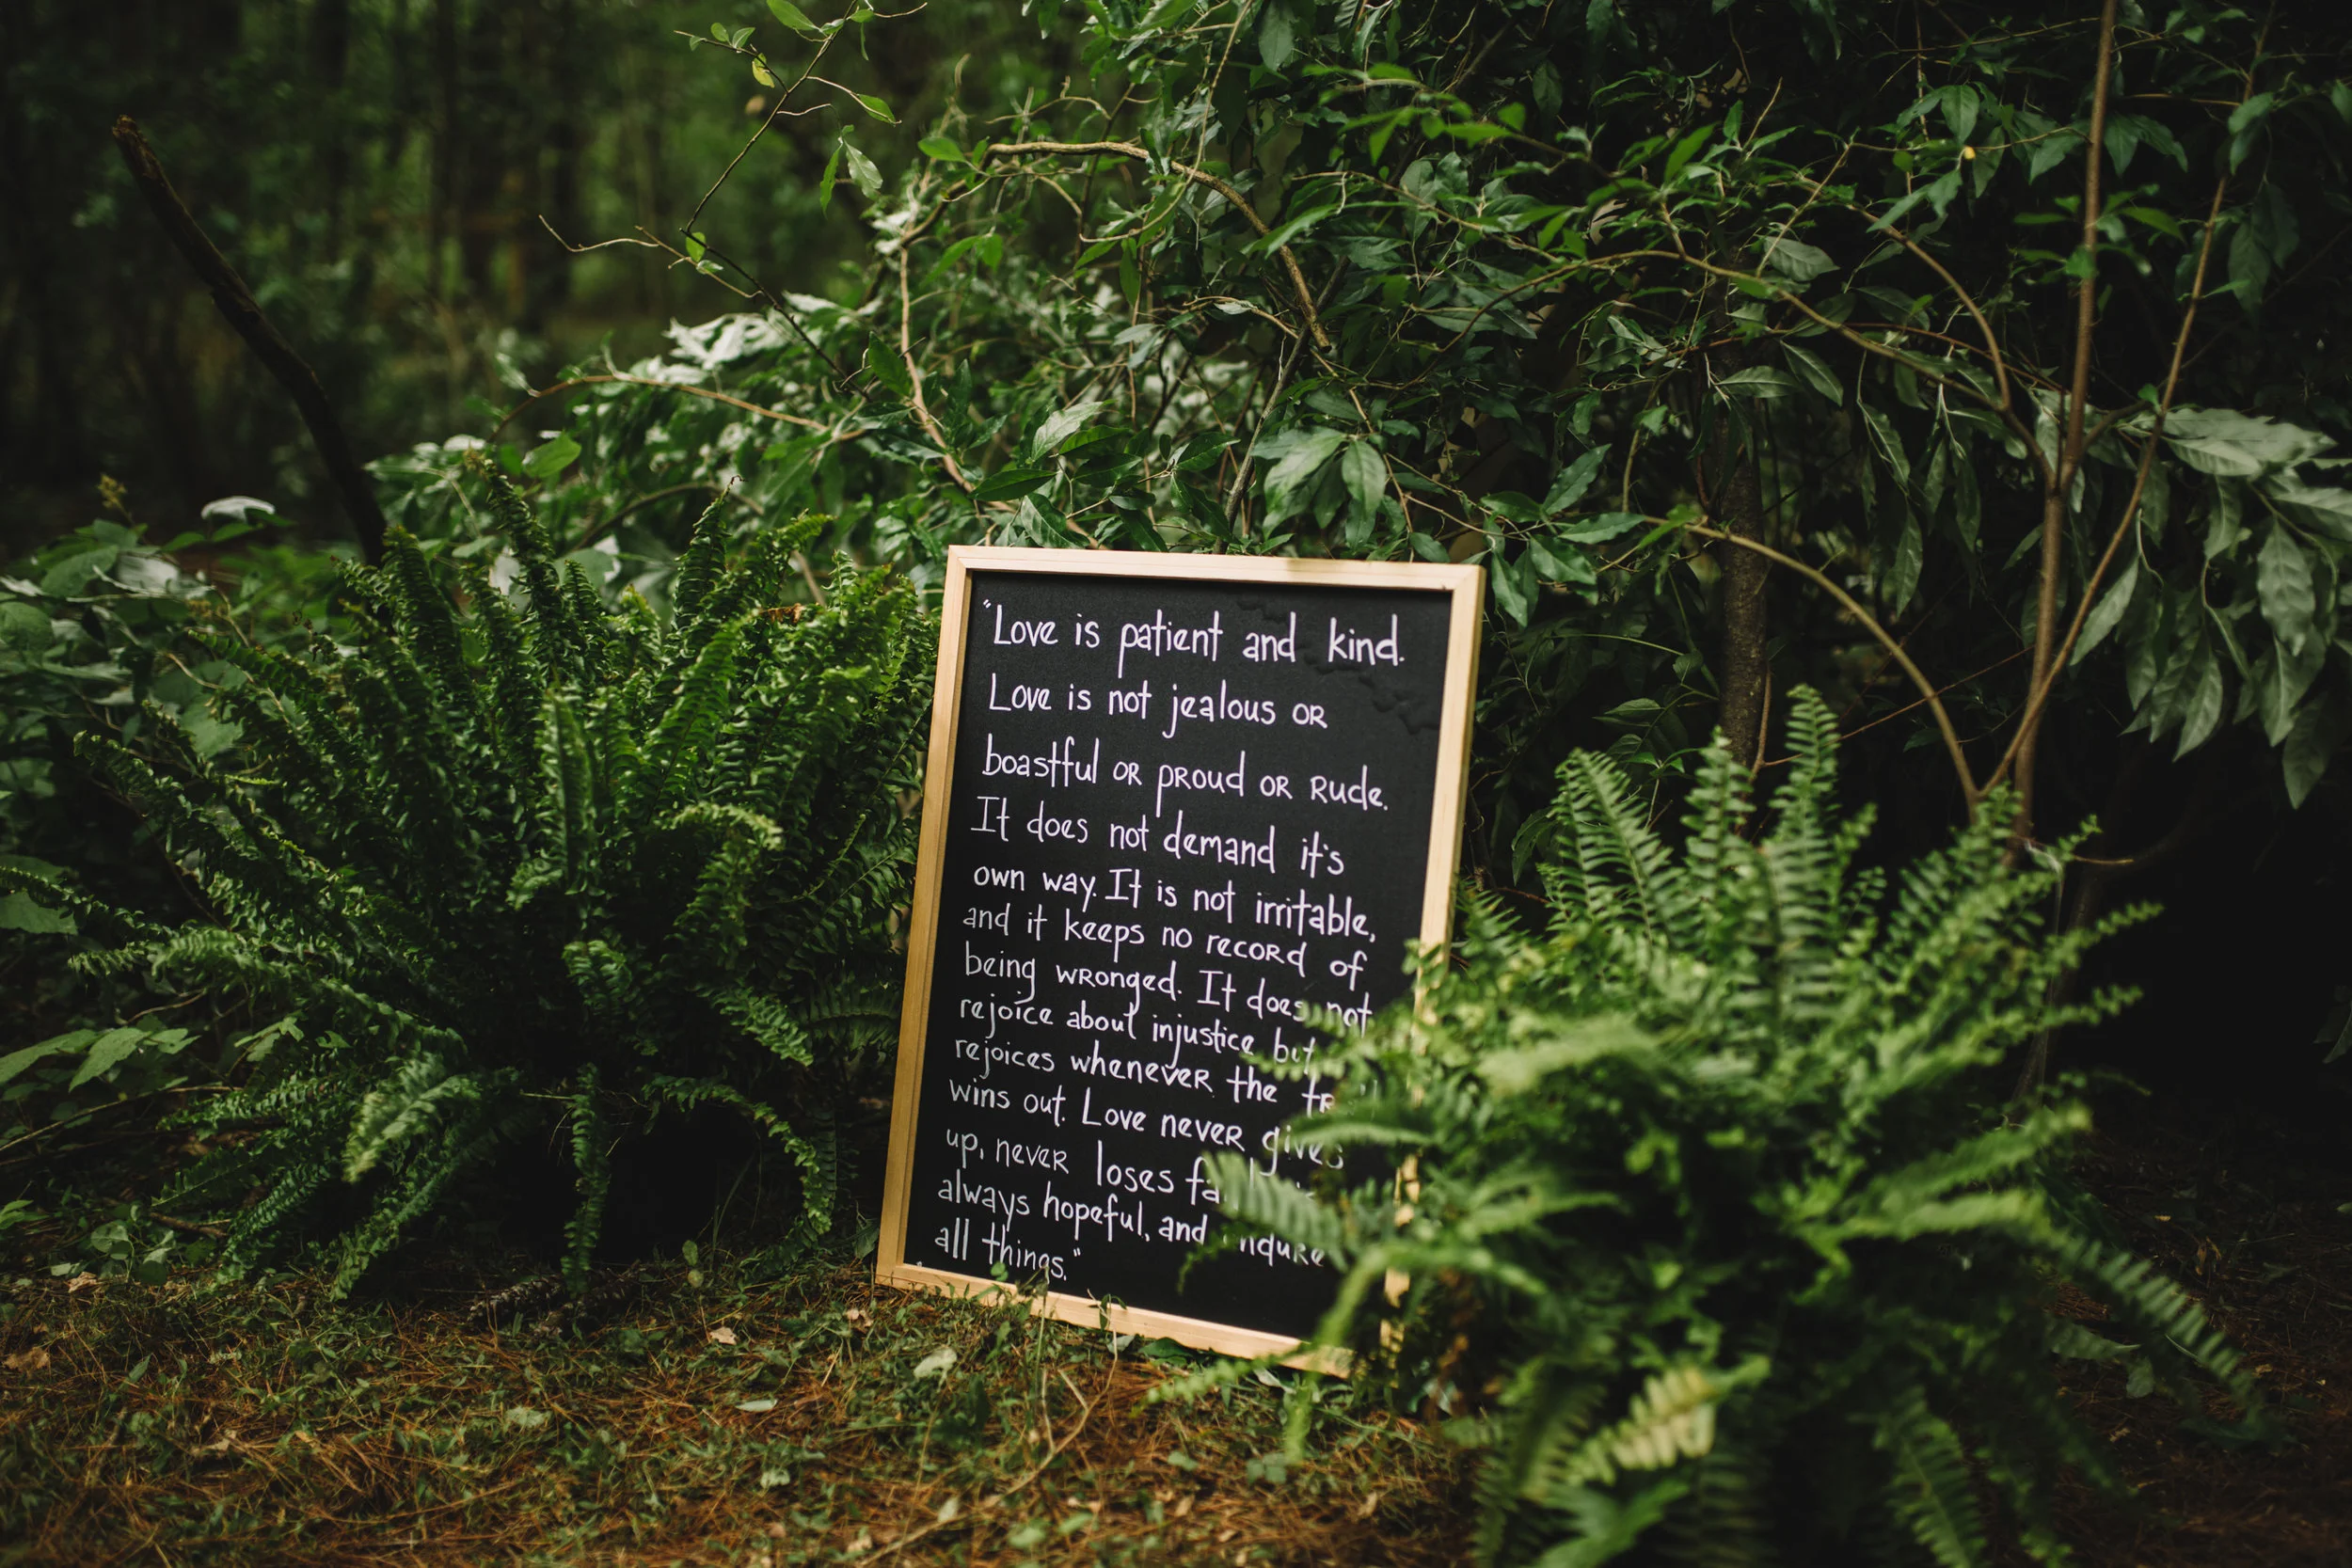 "Love is patient and kind.
Love is not jealous or
boastful or proud or rude.
It does not demand it's
own way. It is not irritable,
and it keeps no record of
being wronged. It does not
rejoice about injustice but
rejoices whenever the
wins out. Love never gives
up, never loses
always hopeful, and
all things."